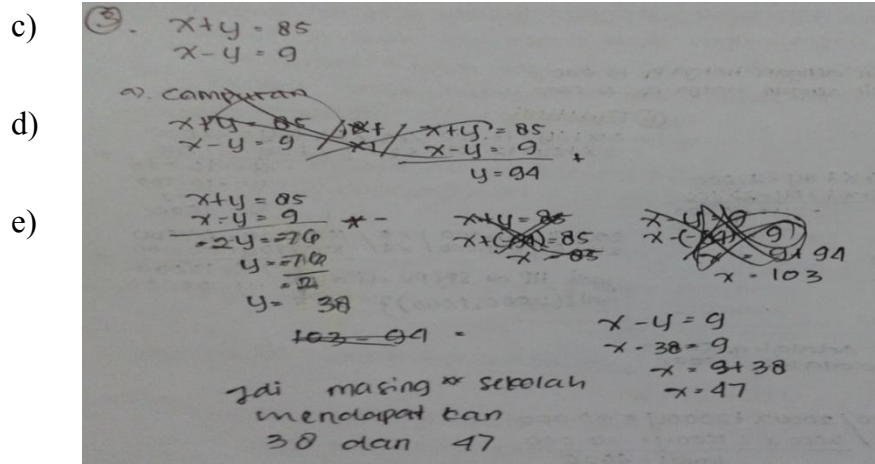 c)
③. x+y = 85
x-y = 9
a). campuran
d)
x+y = 85
x-y = 9
x1
x+y = 85
x-y = 9 +
y = 94
e)
x+y = 85
x-y = 9 -
-2y = -76
y = -76
y = 38
x+y = 85
x+(94) = 85
x - y = 9
x = 9+94
x = 103
103 - 94 =
x - y = 9
x - 38 = 9
x = 9+38
x = 47
Jdi masing" sekolah
mendapat kan
38 dan 47